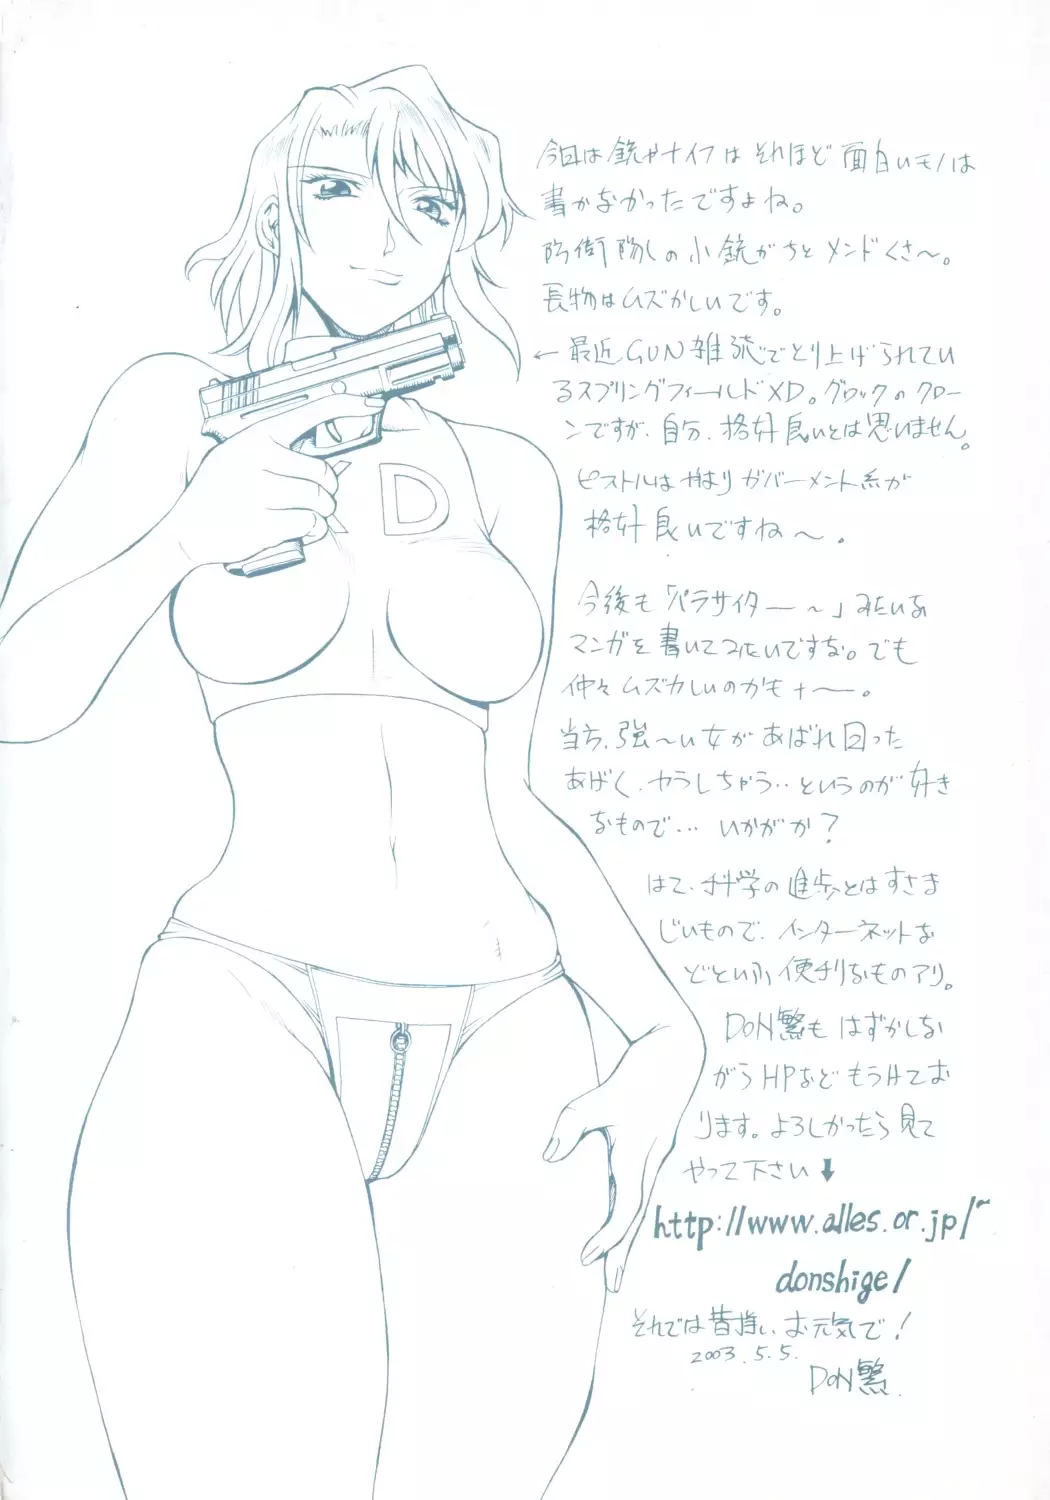 今回は銃やナイフはそれほど面白いモノは
書かなかったですよね。
防衛隊の小銃がちとメンドくさ〜。
長物はムズかしいです。
←最近GUN雑誌でとり上げられてい
るスプリングフィールドXD。グロックのクロー
ンですが、自分、格好良いとは思いません。
ピストルはやはりガバーメント系が
格好良いですね〜。
今後も「パラサイター〜」みたいな
マンガを書いてみたいですな。でも
仲々ムズカしいのかもナ〜。
当方、強〜い女があばれ回った
あげく、ヤラしちゃう‥というのが好き
なもので… いかがか?
はて、科学の進歩とはすさま
じいもので、インターネットな
どといふ便利なものアリ。
DON繁もはずかしな
がらHPなどもうけてお
ります。よろしかったら見て
やって下さい⬇
http://www.alles.or.jp/~
donshige/
それでは皆様、お元気で!
2003.5.5.
DON繁.
XD